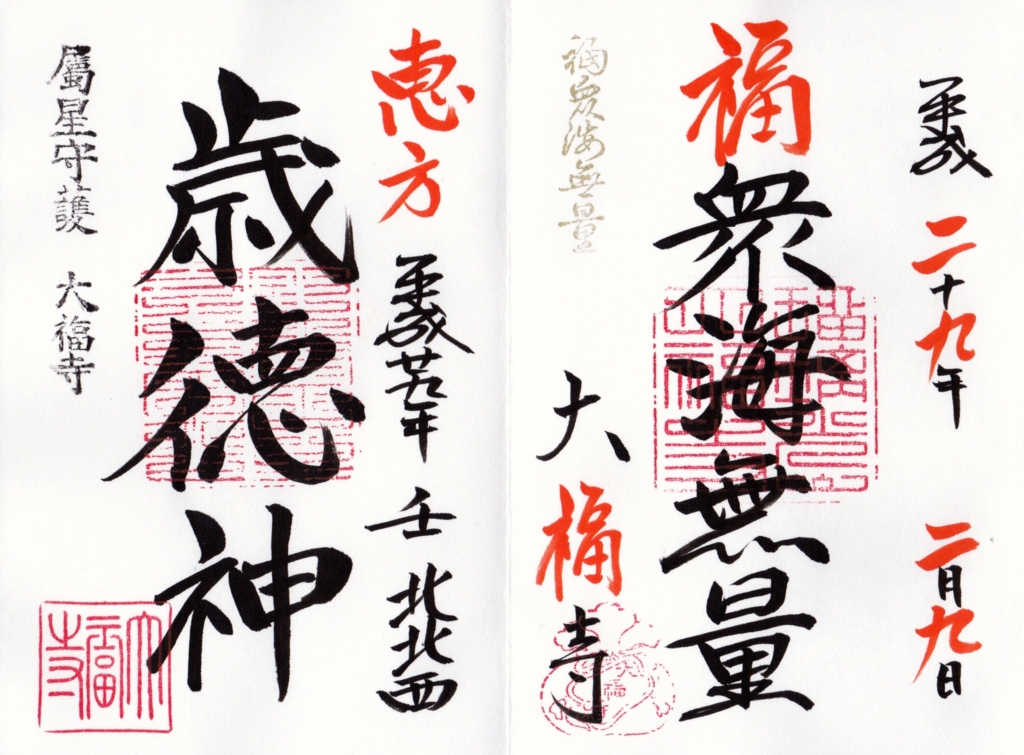 平成二十九年 二月九日
福衆海無量
福衆海無量
大福寺
恵方 平成廿九年 壬 北北西
歳徳神
屬星守護 大福寺
大福寺